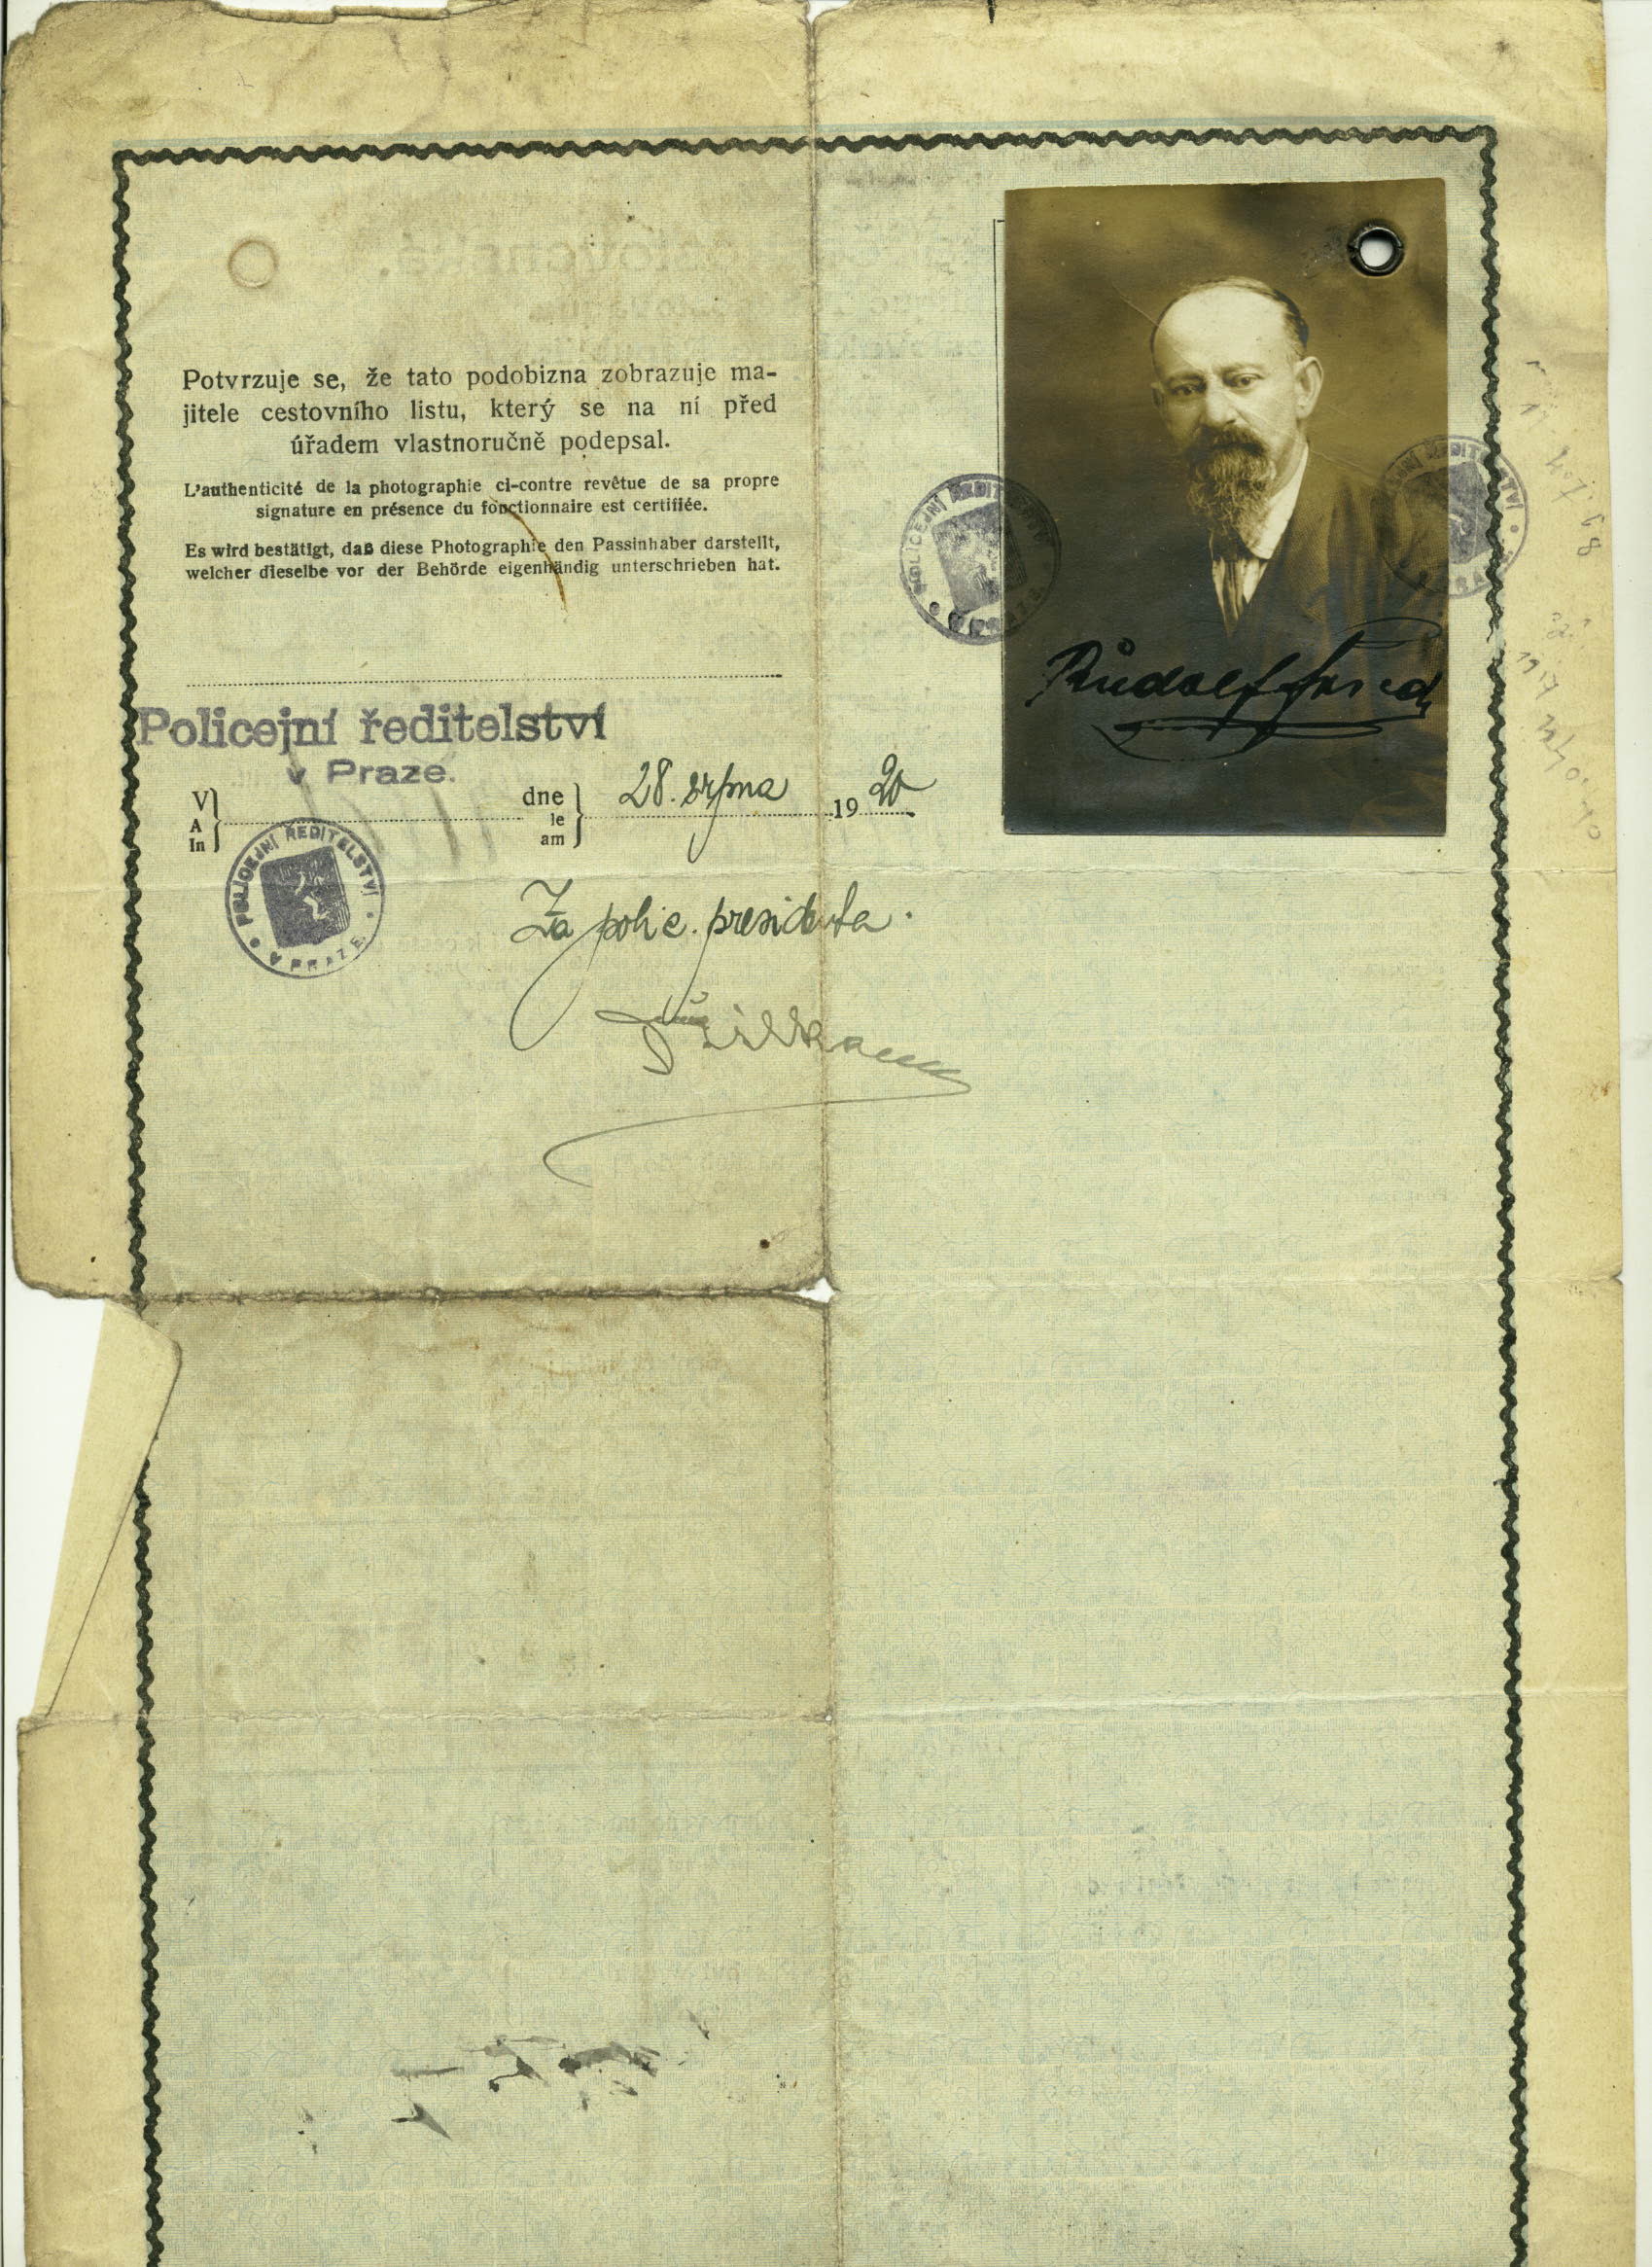 Potvrzuje se, že tato podobizna zobrazuje ma-
jitele cestovního listu, který se na ní před
úřadem vlastnoručně podepsal.
L'authenticité de la photographie ci-contre revêtue de sa propre
signature en présence du fonctionnaire est certifiée.
Es wird bestätigt, daß diese Photographie den Passinhaber darstellt,
welcher dieselbe vor der Behörde eigenhändig unterschrieben hat.
POLICEJNÍ ŘEDITELSTVÍ V PRAZE
POLICEJNÍ ŘEDITELSTVÍ V PRAZE
Rudolf Fried
Policejní ředitelství
v Praze.
V dne 28. srpna 1920
A le
In am
POLICEJNÍ ŘEDITELSTVÍ
V PRAZE
Za polic. presidenta.